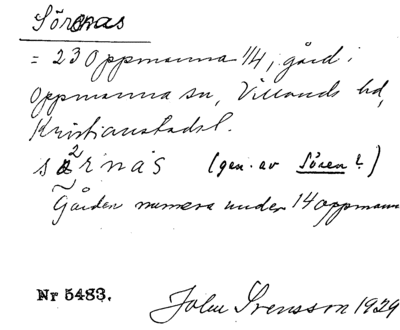 Sörenas
= 23 Oppmanna 1/4, gård i
Oppmanna sn, Villands hd,
Kristianstadsl.
sœ²rnas (gen. av Sören?)
Gården numera under 14 Oppmann
Nr 5483. John Svensson 1929